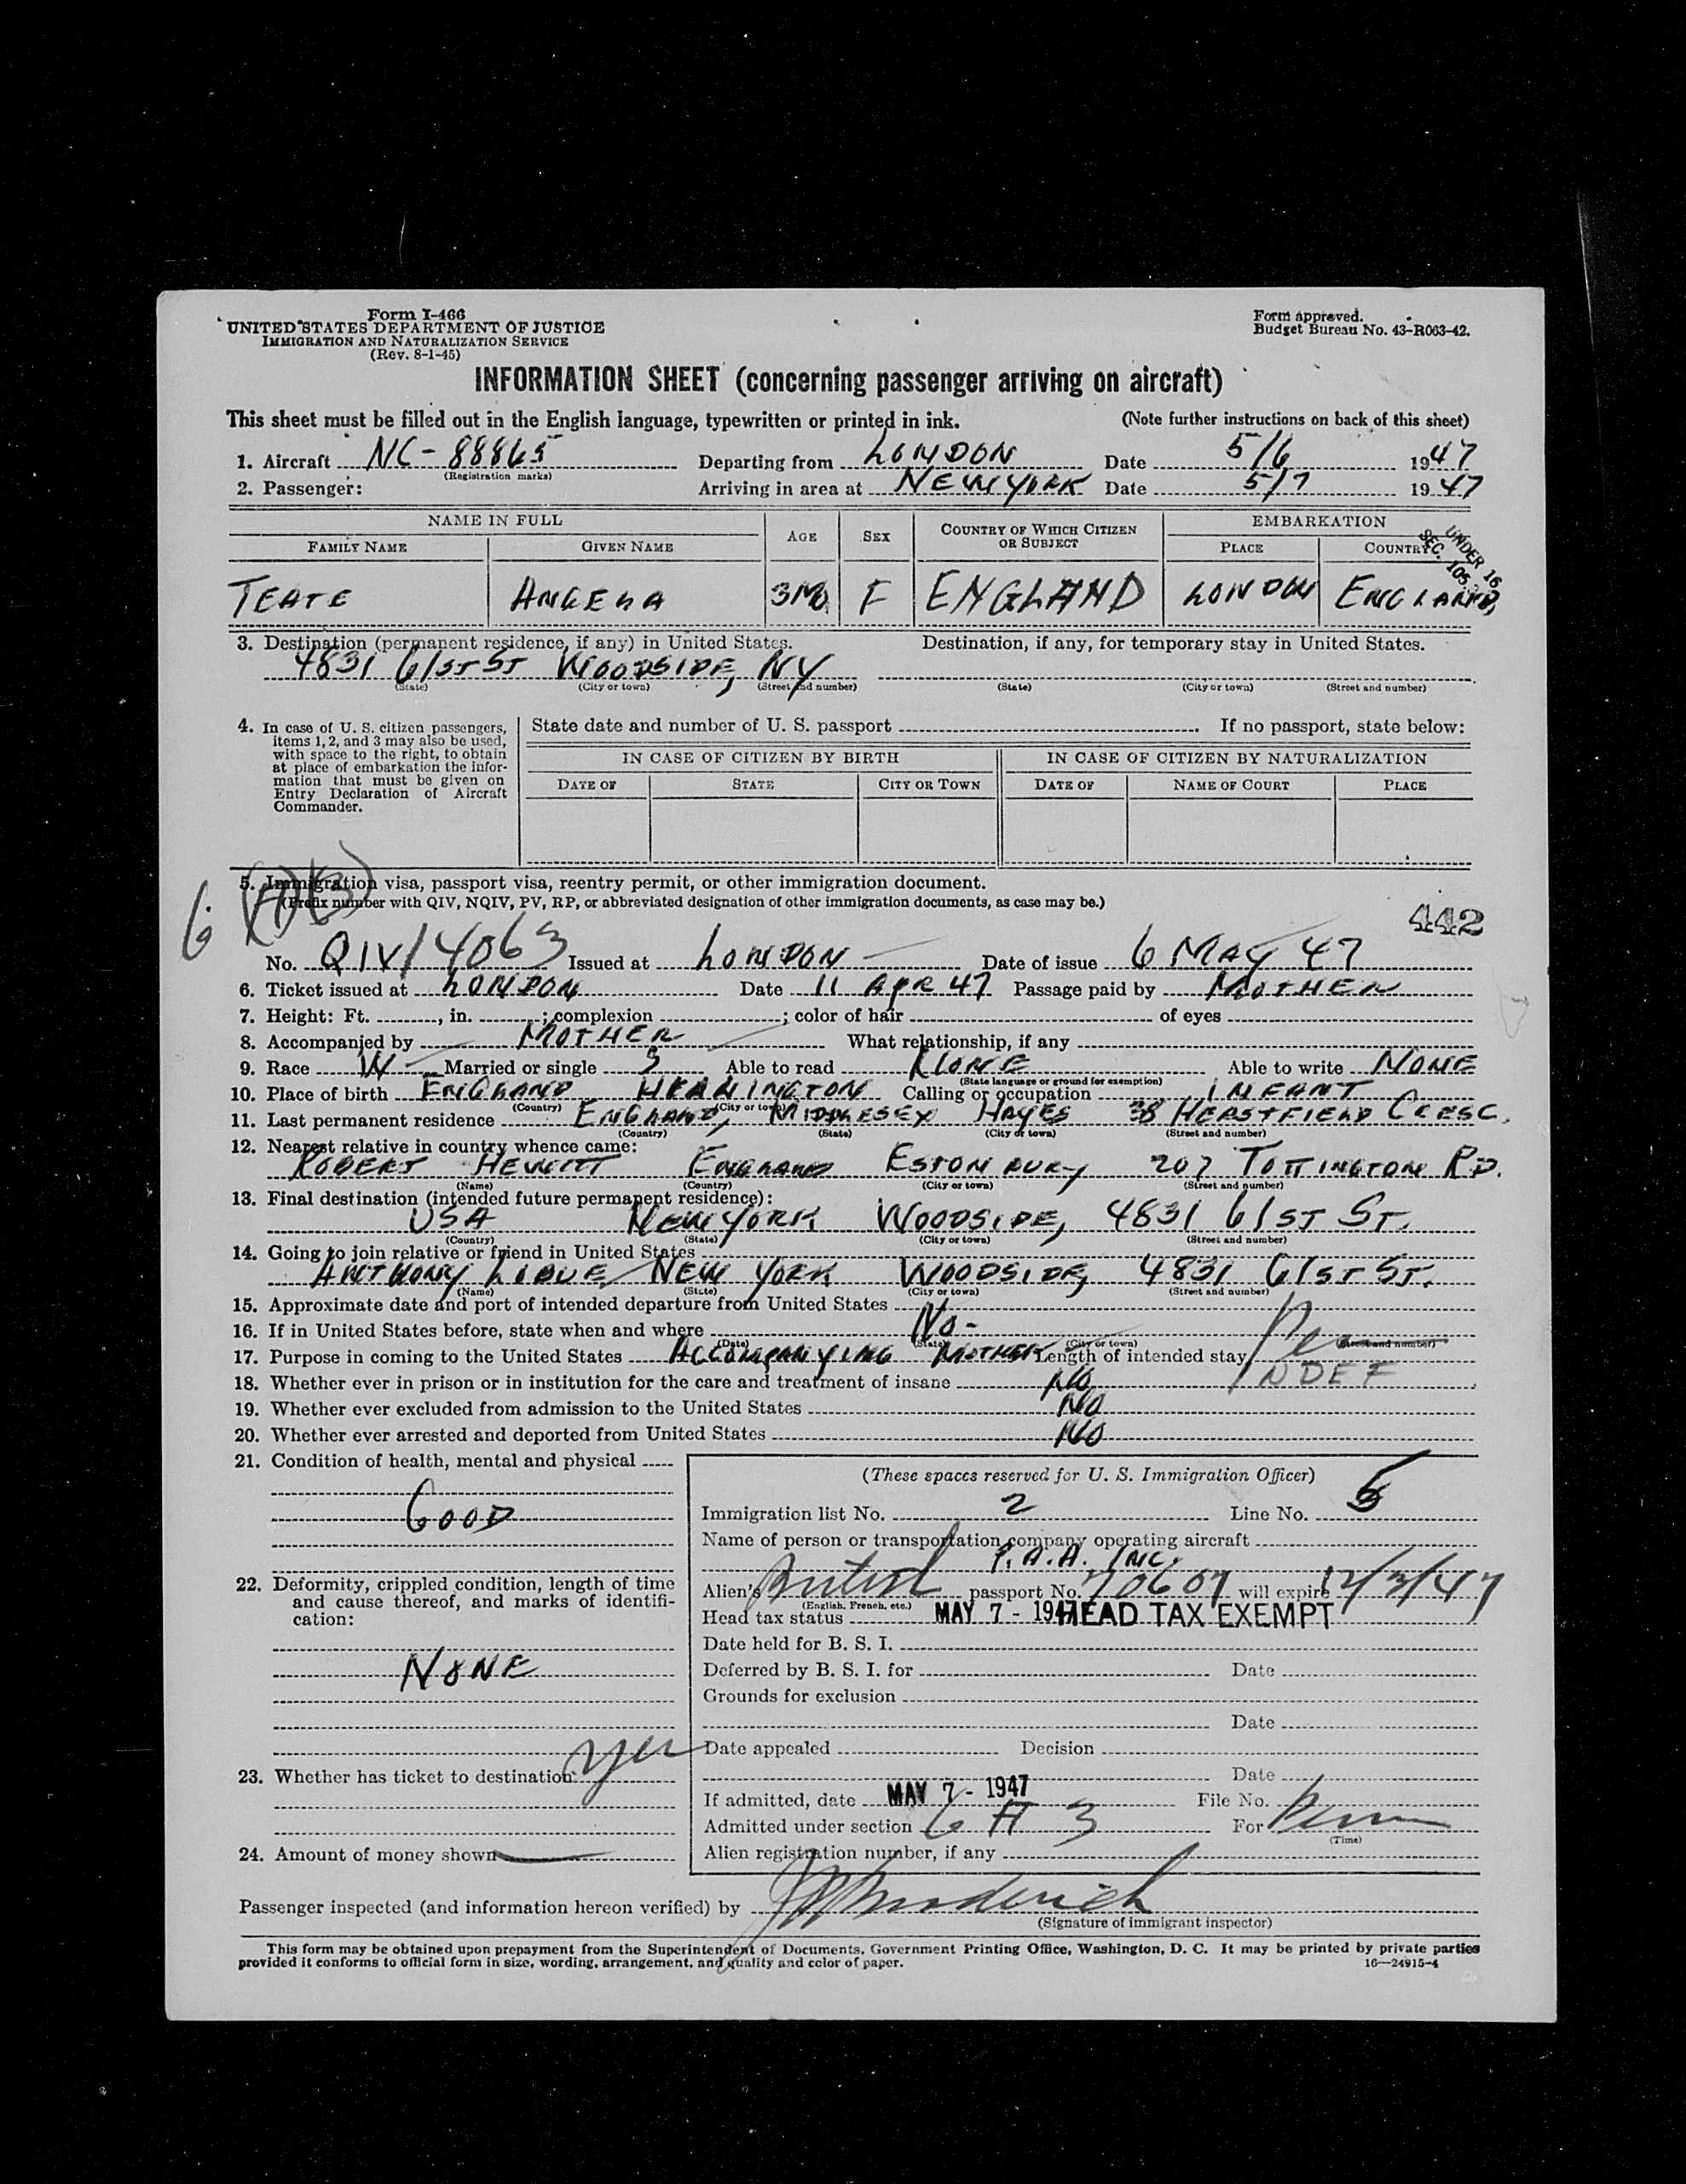 Form I-466
UNITED STATES DEPARTMENT OF JUSTICE
IMMIGRATION AND NATURALIZATION SERVICE
(Rev. 8-1-45)
Form approved.
Budget Bureau No. 43-R063-42.
INFORMATION SHEET (concerning passenger arriving on aircraft)
This sheet must be filled out in the English language, typewritten or printed in ink. (Note further instructions on back of this sheet)
1. Aircraft NC-88865 Departing from LONDON Date 5/6 1947
(Registration marks)
2. Passenger: Arriving in area at NEW YORK Date 5/7 1947
NAME IN FULL AGE SEX COUNTRY OF WHICH CITIZEN OR SUBJECT EMBARKATION
FAMILY NAME GIVEN NAME PLACE COUNTRY
UNDER 16
SEC. 105
TEATE ANGELA 3MO F ENGLAND LONDON ENGLAND
3. Destination (permanent residence, if any) in United States. Destination, if any, for temporary stay in United States.
4831 61ST ST WOODSIDE, NY
(State) (City or town) (Street and number) (State) (City or town) (Street and number)
4. In case of U. S. citizen passengers, items 1, 2, and 3 may also be used, with space to the right, to obtain at place of embarkation the information that must be given on Entry Declaration of Aircraft Commander.
State date and number of U. S. passport If no passport, state below:
IN CASE OF CITIZEN BY BIRTH IN CASE OF CITIZEN BY NATURALIZATION
DATE OF STATE CITY OR TOWN DATE OF NAME OF COURT PLACE
5. Immigration visa, passport visa, reentry permit, or other immigration document.
(Prefix number with QIV, NQIV, PV, RP, or abbreviated designation of other immigration documents, as case may be.)
6 (A)(3)
442
No. QIV/4063 Issued at LONDON Date of issue 6 MAY 47
6. Ticket issued at LONDON Date 11 APR 47 Passage paid by MOTHER
7. Height: Ft. , in. ; complexion ; color of hair of eyes
8. Accompanied by MOTHER What relationship, if any
9. Race W Married or single S Able to read NONE Able to write NONE
(State language or ground for exemption)
10. Place of birth ENGLAND Calling or occupation INFANT
(Country) (City or town)
11. Last permanent residence ENGLAND, MIDDLESEX HAYES 38 CRESC.
(Country) (State) (City or town) (Street and number)
12. Nearest relative in country whence came:
ROBERT HEWITT ENGLAND 207 TOTTINGTON RD.
(Name) (Country) (City or town) (Street and number)
13. Final destination (intended future permanent residence):
USA NEW YORK WOODSIDE, 4831 61ST ST.
(Country) (State) (City or town) (Street and number)
14. Going to join relative or friend in United States
ANTHONY NEW YORK WOODSIDE, 4831 61ST ST.
(Name) (State) (City or town) (Street and number)
15. Approximate date and port of intended departure from United States
16. If in United States before, state when and where NO-
(Date) (State) (City or town) (Street and number)
17. Purpose in coming to the United States ACCOMPANYING MOTHER Length of intended stay INDEF
18. Whether ever in prison or in institution for the care and treatment of insane NO
19. Whether ever excluded from admission to the United States NO
20. Whether ever arrested and deported from United States NO
21. Condition of health, mental and physical
GOOD
22. Deformity, crippled condition, length of time and cause thereof, and marks of identification:
NONE
23. Whether has ticket to destination yes
24. Amount of money shown
(These spaces reserved for U. S. Immigration Officer)
Immigration list No. 2 Line No. 5
Name of person or transportation company operating aircraft
P.A.A. INC.
Alien's British passport No. 70607 will expire 12/3/47
(English, French, etc.)
Head tax status MAY 7 - 1947 HEAD TAX EXEMPT
Date held for B. S. I.
Deferred by B. S. I. for Date
Grounds for exclusion
Date
Date appealed Decision
Date
If admitted, date MAY 7 - 1947 File No.
Admitted under section 6 A 3 For Perm
(Time)
Alien registration number, if any
Passenger inspected (and information hereon verified) by
(Signature of immigrant inspector)
This form may be obtained upon prepayment from the Superintendent of Documents, Government Printing Office, Washington, D. C. It may be printed by private parties
provided it conforms to official form in size, wording, arrangement, and quality and color of paper. 16—24915-4